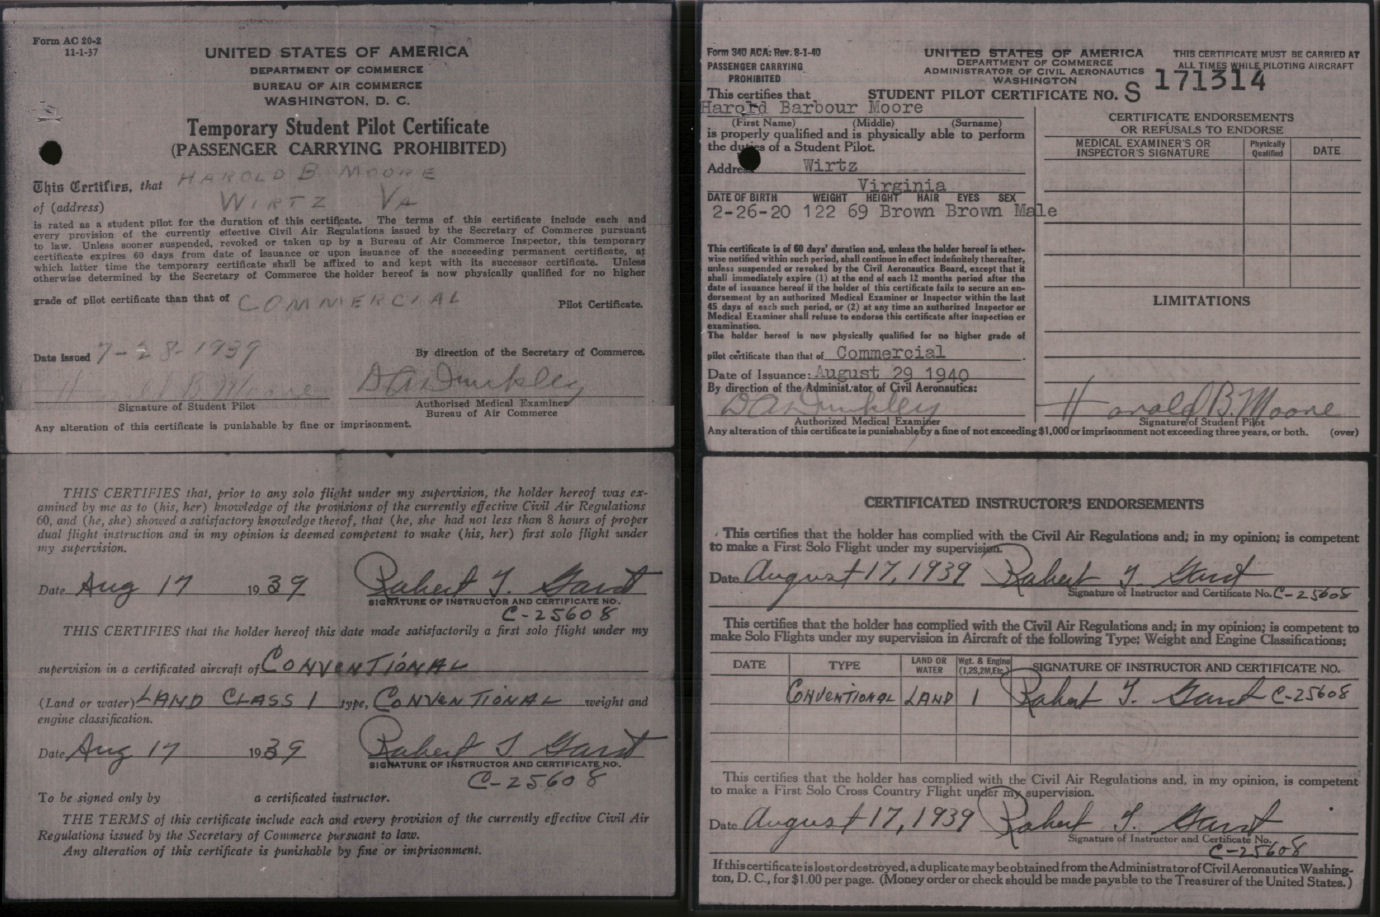 Form AC 20-2
11-1-37
UNITED STATES OF AMERICA
DEPARTMENT OF COMMERCE
BUREAU OF AIR COMMERCE
WASHINGTON, D. C.
Temporary Student Pilot Certificate
(PASSENGER CARRYING PROHIBITED)
This Certifies, that HAROLD B MOORE
of (address) WIRTZ VA
is rated as a student pilot for the duration of this certificate. The terms of this certificate include each and
every provision of the currently effective Civil Air Regulations issued by the Secretary of Commerce pursuant
to law. Unless sooner suspended, revoked or taken up by a Bureau of Air Commerce Inspector, this temporary
certificate expires 60 days from date of issuance or upon issuance of the succeeding permanent certificate, at
which latter time the temporary certificate shall be affixed to and kept with its successor certificate. Unless
otherwise determined by the Secretary of Commerce the holder hereof is now physically qualified for no higher
grade of pilot certificate than that of COMMERCIAL Pilot Certificate.
Date issued 7-28-1939 By direction of the Secretary of Commerce.
H B Moore D A Dunkley
Signature of Student Pilot Authorized Medical Examiner
Bureau of Air Commerce
Any alteration of this certificate is punishable by fine or imprisonment.
THIS CERTIFIES that, prior to any solo flight under my supervision, the holder hereof was ex-
amined by me as to (his, her) knowledge of the provisions of the currently effective Civil Air Regulations
60, and (he, she) showed a satisfactory knowledge thereof, that (he, she had not less than 8 hours of proper
dual flight instruction and in my opinion is deemed competent to make (his, her) first solo flight under
my supervision.
Date Aug 17 1939 Robert T. Garst
SIGNATURE OF INSTRUCTOR AND CERTIFICATE NO.
C-25608
THIS CERTIFIES that the holder hereof this date made satisfactorily a first solo flight under my
supervision in a certificated aircraft of CONVENTIONAL
(Land or water) LAND CLASS 1 type, CONVENTIONAL weight and
engine classification.
Date Aug 17 1939 Robert T. Garst
SIGNATURE OF INSTRUCTOR AND CERTIFICATE NO.
C-25608
To be signed only by a certificated instructor.
THE TERMS of this certificate include each and every provision of the currently effective Civil Air
Regulations issued by the Secretary of Commerce pursuant to law.
Any alteration of this certificate is punishable by fine or imprisonment.
Form 340 ACA: Rev. 8-1-40
PASSENGER CARRYING
PROHIBITED
UNITED STATES OF AMERICA
DEPARTMENT OF COMMERCE
ADMINISTRATOR OF CIVIL AERONAUTICS
WASHINGTON
THIS CERTIFICATE MUST BE CARRIED AT
ALL TIMES WHILE PILOTING AIRCRAFT
This certifies that STUDENT PILOT CERTIFICATE NO. S 171314
Harold Barbour Moore
(First Name) (Middle) (Surname)
is properly qualified and is physically able to perform
the duties of a Student Pilot.
Address Wirtz
Virginia
DATE OF BIRTH WEIGHT HEIGHT HAIR EYES SEX
2-26-20 122 69 Brown Brown Male
This certificate is of 60 days' duration and, unless the holder hereof is other-
wise notified within such period, shall continue in effect indefinitely thereafter,
unless suspended or revoked by the Civil Aeronautics Board, except that it
shall immediately expire (1) at the end of each 12 months period after the
date of issuance hereof if the holder of this certificate fails to secure an en-
dorsement by an authorized Medical Examiner or Inspector within the last
45 days of each such period, or (2) at any time an authorized Inspector or
Medical Examiner shall refuse to endorse this certificate after inspection or
examination.
The holder hereof is now physically qualified for no higher grade of
pilot certificate than that of Commercial.
Date of Issuance: August 29 1940
By direction of the Administrator of Civil Aeronautics:
D A Dunkley
Authorized Medical Examiner
CERTIFICATE ENDORSEMENTS
OR REFUSALS TO ENDORSE
MEDICAL EXAMINER'S OR
INSPECTOR'S SIGNATURE
Physically
Qualified
DATE
LIMITATIONS
Harold B. Moore
Signature of Student Pilot
Any alteration of this certificate is punishable by a fine of not exceeding $1,000 or imprisonment not exceeding three years, or both. (over)
CERTIFICATED INSTRUCTOR'S ENDORSEMENTS
This certifies that the holder has complied with the Civil Air Regulations and; in my opinion; is competent
to make a First Solo Flight under my supervision.
Date August 17, 1939 Robert T. Garst
Signature of Instructor and Certificate No. C-25608
This certifies that the holder has complied with the Civil Air Regulations and; in my opinion; is competent to
make Solo Flights under my supervision in Aircraft of the following Type; Weight and Engine Classifications;
DATE TYPE LAND OR WATER Wgt. & Engine (1,2S,2M,Etc.) SIGNATURE OF INSTRUCTOR AND CERTIFICATE NO.
CONVENTIONAL LAND 1 Robert T. Garst C-25608
This certifies that the holder has complied with the Civil Air Regulations and, in my opinion, is competent
to make a First Solo Cross Country Flight under my supervision.
Date August 17, 1939 Robert T. Garst
Signature of Instructor and Certificate No.
C-25608
If this certificate is lost or destroyed, a duplicate may be obtained from the Administrator of Civil Aeronautics Washing-
ton, D. C., for $1.00 per page. (Money order or check should be made payable to the Treasurer of the United States.)